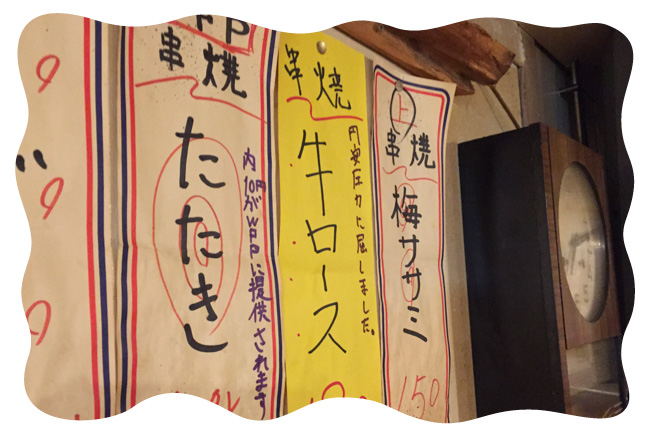 上
串焼
梅ササミ
150
串焼
牛ロース
円安圧力に屈しました。
串焼
たたき
内10円がWPPに提供されます